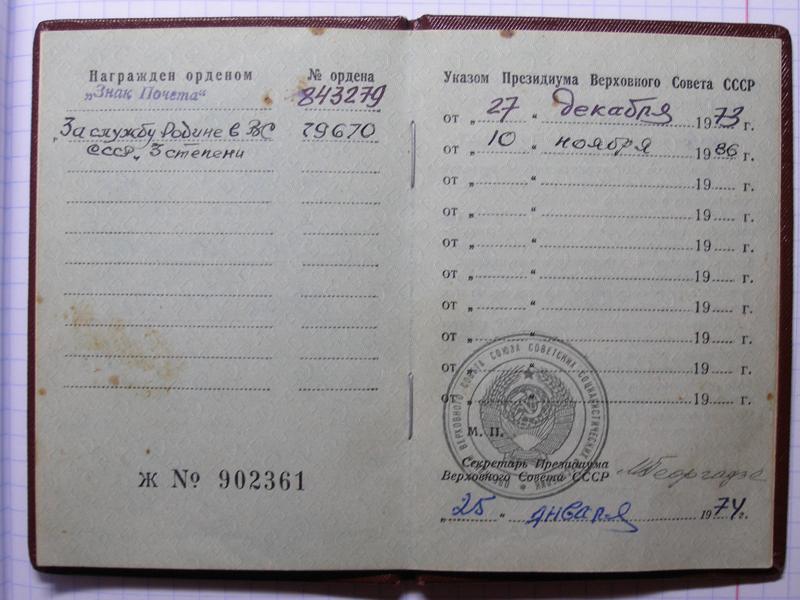 Награжден орденом № ордена
„Знак Почета“ 843279
„За службу Родине в ВС 79670
СССР„ 3 степени
Ж № 902361
Указом Президиума Верховного Совета СССР
от „ 27 “ декабря 1973 г.
от „ 10 “ ноября 1986 г.
от „ “ 19 г.
от „ “ 19 г.
от „ “ 19 г.
от „ “ 19 г.
от „ “ 19 г.
от „ “ 19 г.
от „ “ 19 г.
от „ “ 19 г.
ВЕРХОВНОГО СОВЕТА СОЮЗА СОВЕТСКИХ СОЦИАЛИСТИЧЕСКИХ
М. П.
Секретарь Президиума
Верховного Совета СССР МГеоргадзе
„ 25 “ января 1974 г.